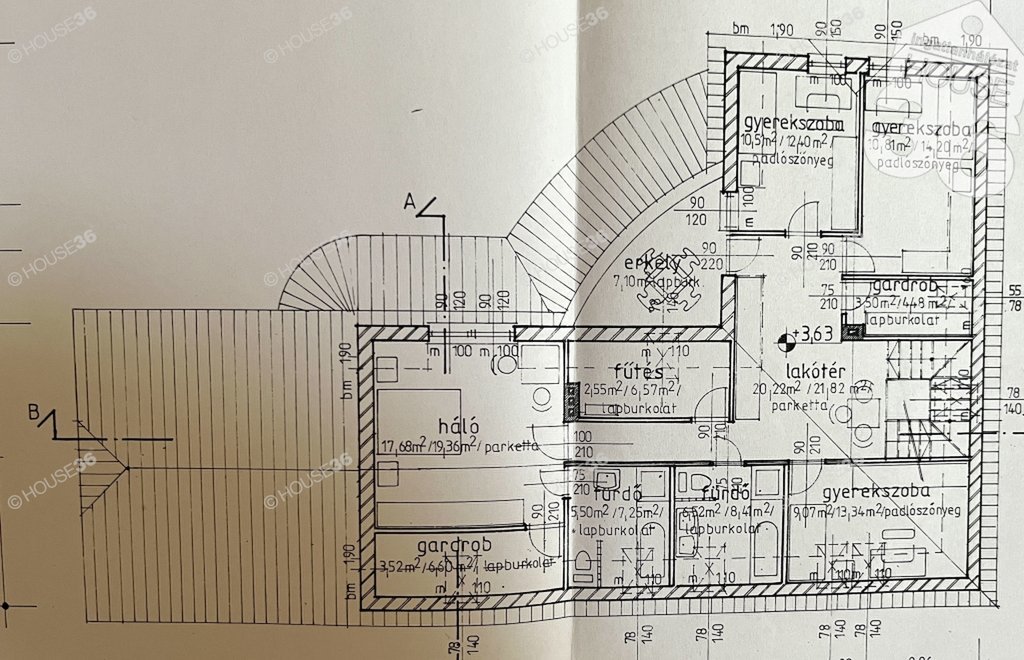 © HOUSE36
© HOUSE36
© HOUSE36
© HOUSE36
bm 1,90
90
150
90
150
bm 1,90
Ingatlanhálózat
m 100
m 100
gyerekszoba
10,51m²/12,40m²/
padlószőnyeg
gyerekszoba
10,81m²/14,20m²/
padlószőnyeg
A
90
120
m 100
90
210
90
210
90
220
erkély
75
210
gardrob
3,50/4,48 m²/
lapburkolat
55
78
90
120
90
120
+3,63
bm 1,90
m 100
m 100
m 110
fűtés
2,55m²/6,57m²/
lapburkolat
lakótér
20,22m²/21,82 m²/
parketta
78
140
B
háló
17,68m²/19,36m²/ parketta
100
210
90
210
90
210
75
210
fürdő
5,50m²/7,25m²/
lapburkolat
75
210
fürdő
6,52m²/8,41m²/
lapburkolat
gyerekszoba
9,07m²/13,34m²/padlószőnyeg
90
210
gardrob
3,52m²/6,60m²/ lapburkolat
bm 1,90
m 110
m 110
m 110
m 110
78
140
78
140
78
140
78
140
78
140